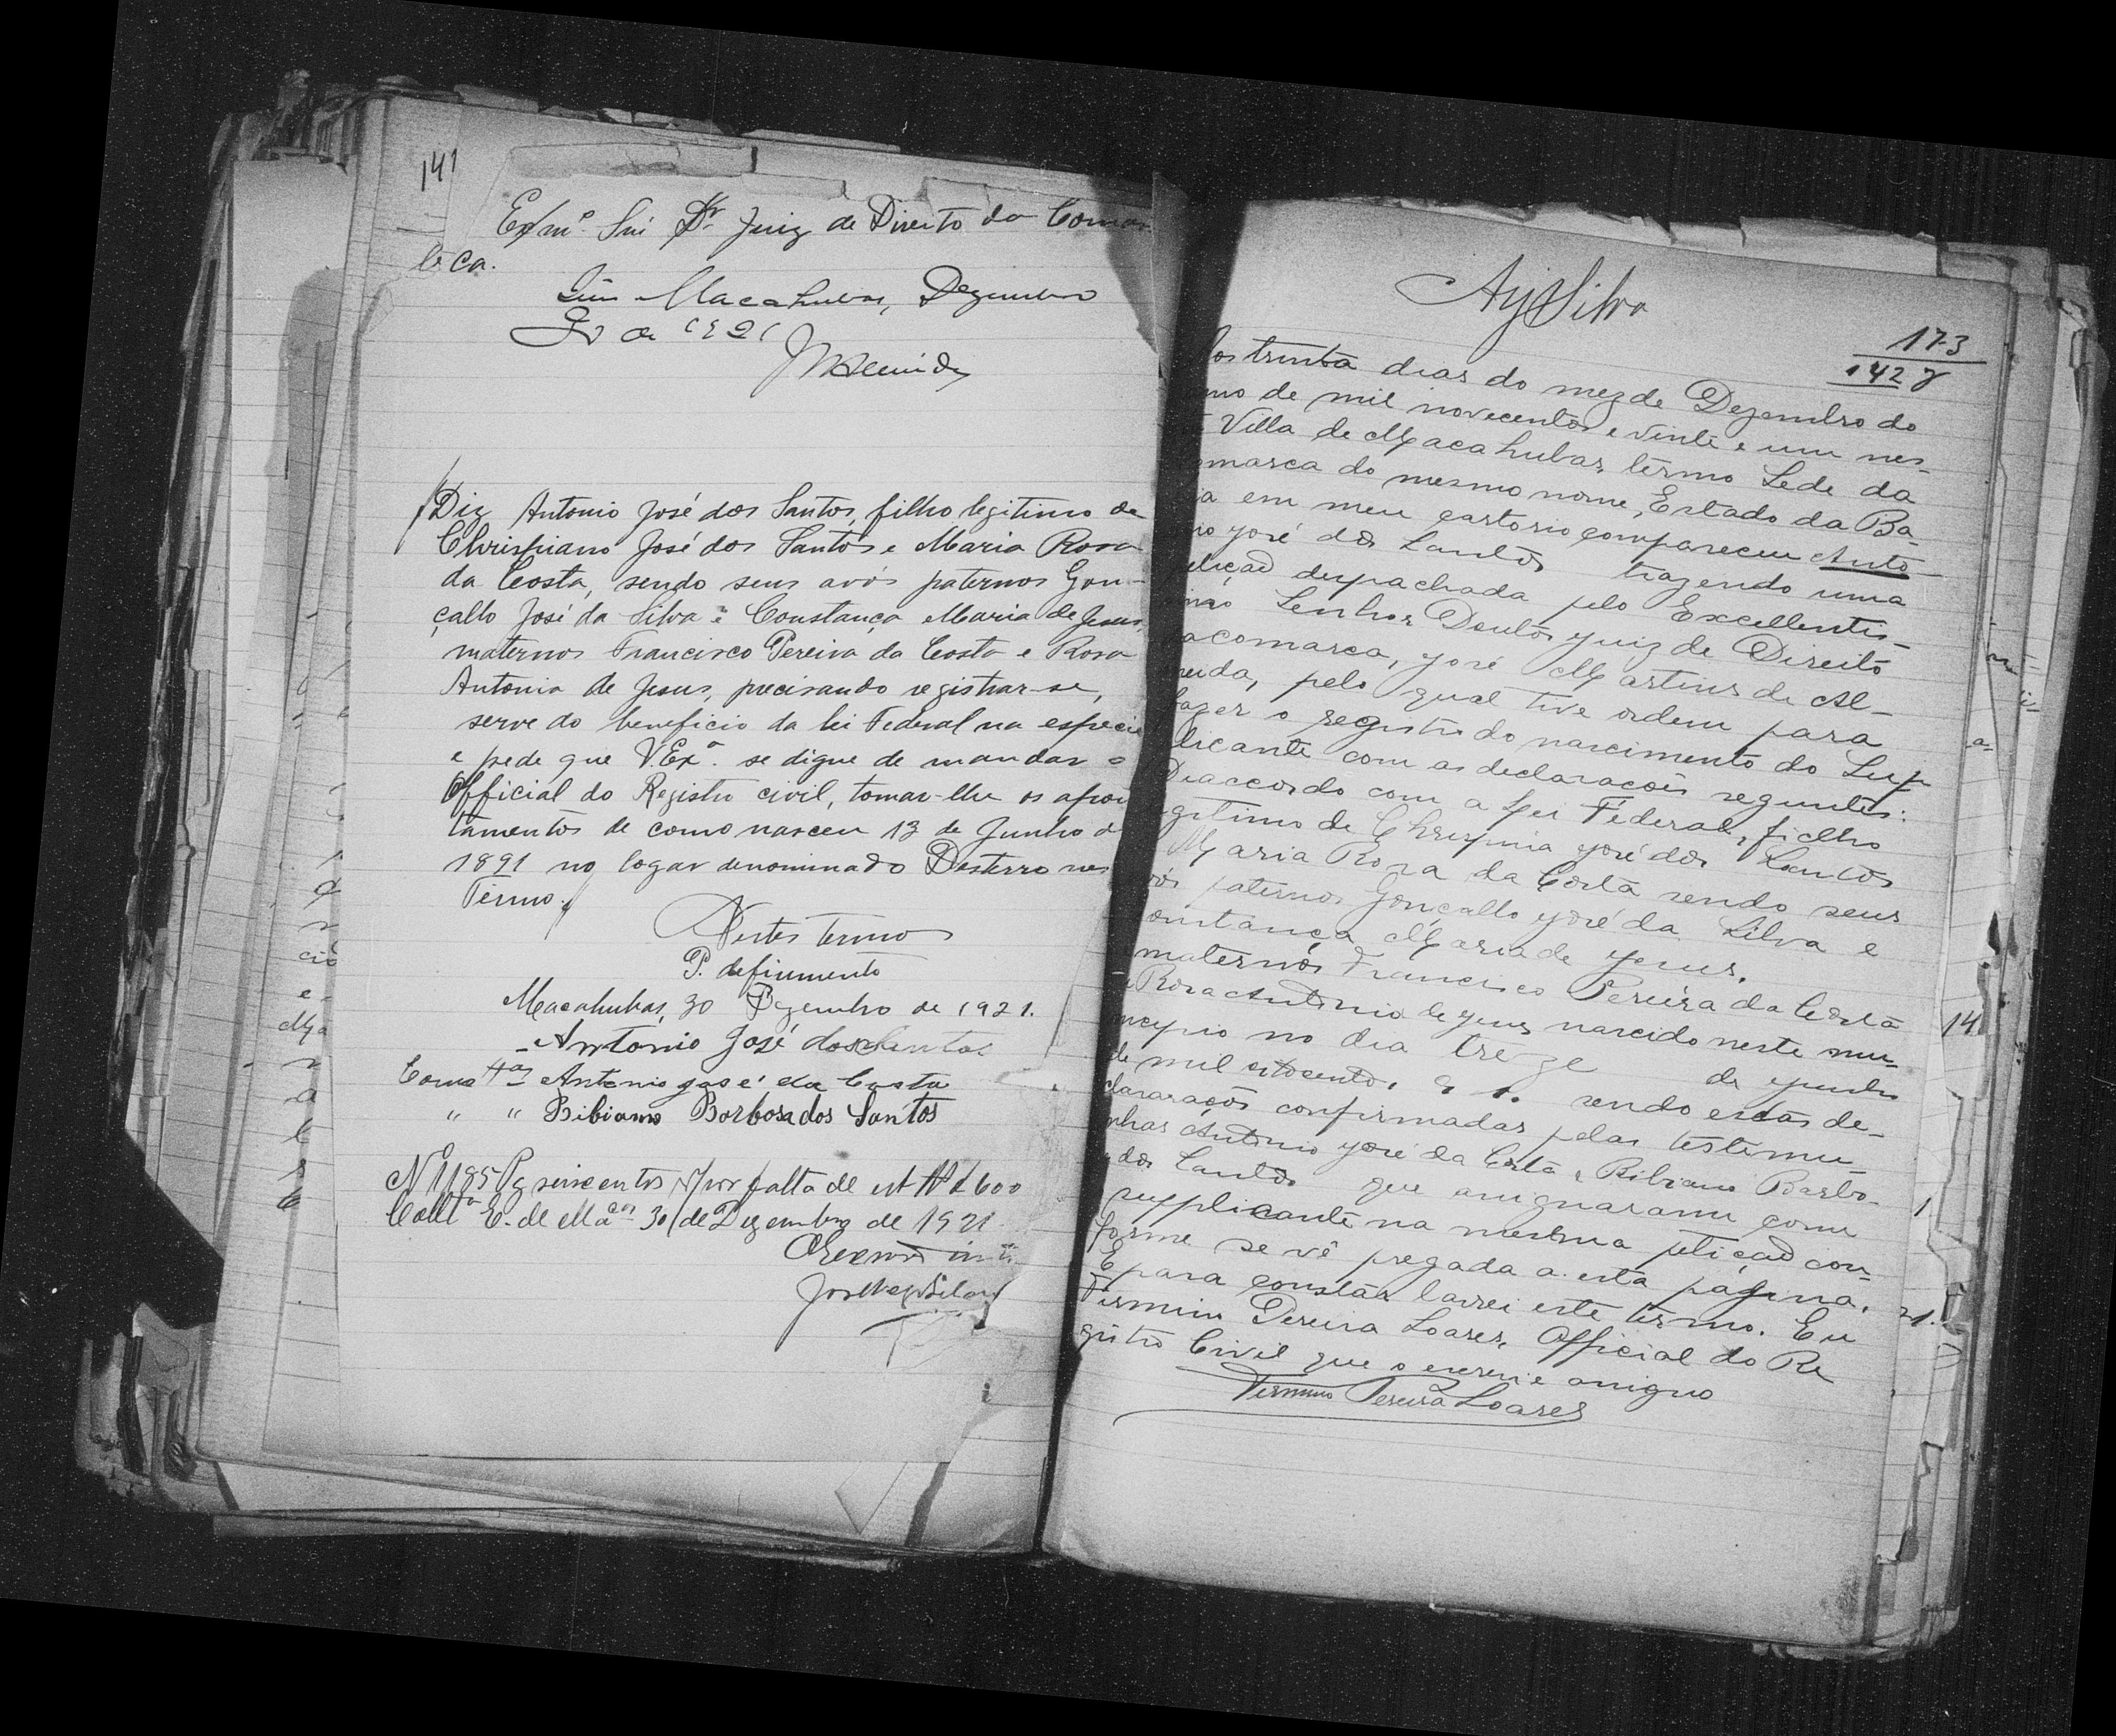 141
Exmº Snr Dr Juiz de Direito da Comar
ca.
Sim Macahubas, Dezembro
30 de 1921
JMAlmeida
Diz Antonio José dos Santos, filho legitimo de
Chrispiano José dos Santos e Maria Rosa
da Costa, sendo seus avós paternos Gon-
çallo José da Silva e Constança Maria de Jesus,
maternos Francisco Pereira da Costa e Rosa
Antonia de Jesus, precisando registrar-se,
serve do beneficio da lei Federal na especie
e pede que V. Exª. se digne de mandar o
Official do Registro civil, tomar-lhe os apon
tamentos de como nasceu 13 de Junho d
1891 no logar denominado Desterro nes
Termo.
Nestes termos
P. deferimento
Macahubas, 30 Dezembro de 1921.
Antonio José dos Santos
Como tas Antonio José da Costa
" " Bibiano Barbosa dos Santos
Nº 1185 Pg seiscentos por falta de est. 600
Collta E. de Macas 30 de Dezembro de 1921
AySilva
173
142
os trinta dias do mez de Dezembro do
nno de mil novecentos e vinte e um nes-
Villa de Macahubas, têrmo Sede da
omarca do mesmo nome, Estado da Ba-
ia em meu cartorio compareceu Anto-
nio José dos Santos trazendo uma
etição despachada pelo Excellentis-
imo Senhor Doutor Juiz de Direito
a comarca, José Martins de Al-
meida, pelo qual tive ordem para
fazer o registro do nascimento do Sup
licante com as declarações seguintes:
De accordo com a Lei Federal, filho
egitimo de Chrispina José dos Santos
Maria Rosa da Costa sendo seus
vós paternos Goncallo José da Silva e
onstança Maria de Jesus.
maternos Francisco Pereira da Costa
e Rosa Antonia de Jesus nascido neste mu-
nicipio no dia treze de Junho
de mil oitocentos, 91. sendo estas de-
claracões confirmadas pelas testemu-
nhas Antonio José da Costa e Bibiano Barbo-
dos Santos que assignaram com
supplicante na mesma petição con-
forme se vê pregada a esta página.
E para constar lavrei este têrmo. Eu
Firmino Pereira Soares, Official do Re
gistro Civil que o escrevi e assigno
Firmino Pereira Soares